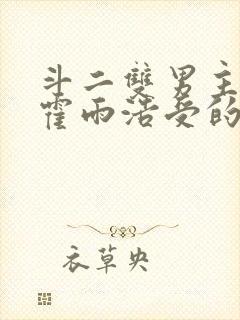 斗二雙男主
霍雨浩受的
衣草央